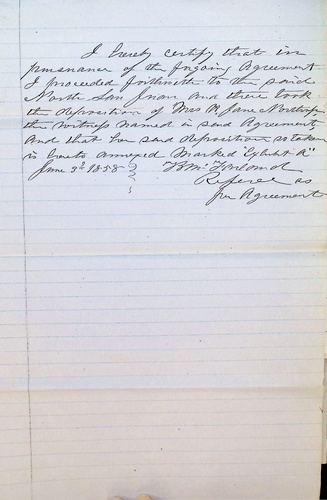 I hereby certify that in
pursuance of the fogoing Agreement
I proceeded forthwith to the said
North San Juan and there took
the deposition of Mrs R. Jane Northrup
the witness named in said Agreement
And that her said deposition so taken
is hereto annexed Marked "Exhibit A"
June 9th 1858
Referee as
per Agreement